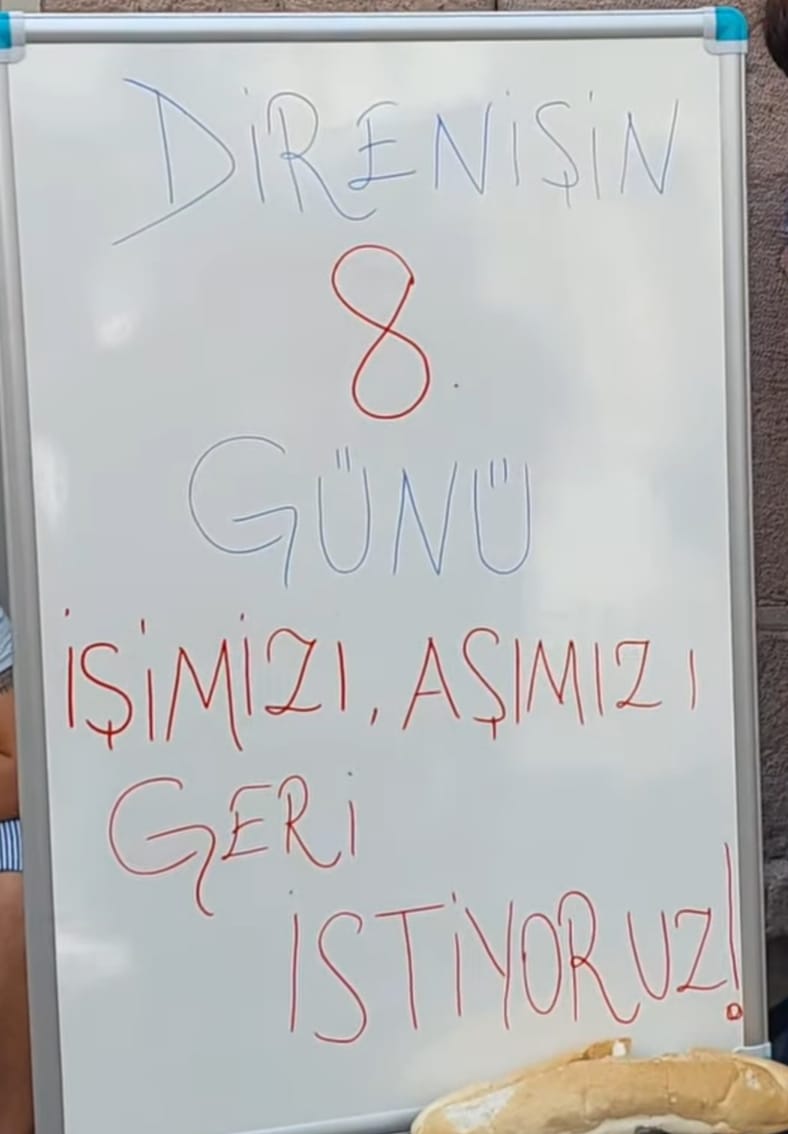 DİRENİŞİN
8.
GÜNÜ
İŞİMİZI, AŞIMIZI
GERİ
İSTİYORUZ!